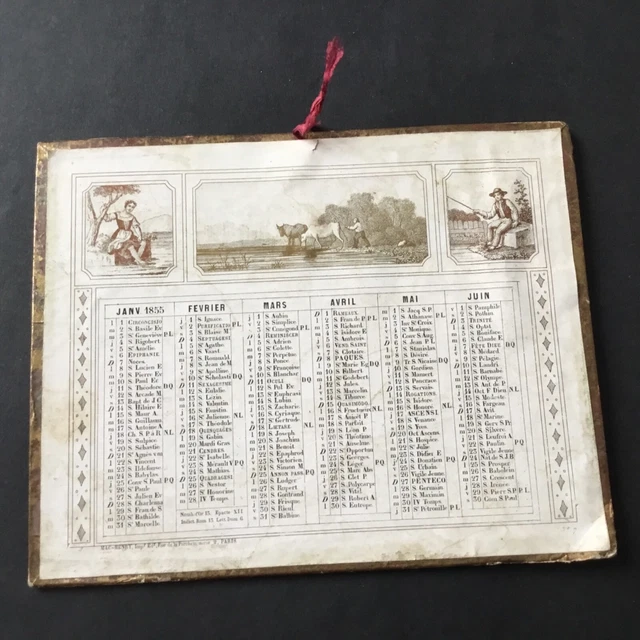 JANV 1855
1 Circoncisio
2 S. Basile Ev
3 Sᵉ Geneviev P.L
4 S. Rigobert
5 Sᵉ Amélie
6 Epiphanie
7 Noces
8 S. Lucien E
9 S. Pierre Ev
10 S. Paul Er
11 S. Théodore
12 S. Arcade M
13 Bapt de J.
14 S. Hilaire E
15 S. Maur
16 S. Guillaume
17 S. Antoine A
18 Ch S P à R N.L
19 S. Sulpice
20 S. Sébastien
21 Sᵉ Agnès vm
22 S. Vincent
23 S. Ildefonse
24 S. Babylas
25 Conv S. Paul P.Q
26 Sᵉ Paule
27 S. Julien Ev
28 S. Charlema
29 S. Franc. de S
30 Sᵉ Bathilde
31 Sᵉ Marcelle
FEVRIER
1 S. Ignace
2 Purificatio P.L
3 S. Blaise M
4 Septuagési
5 Sᵉ Agathe
6 S. Vaast
7 S. Romuald
8 S. Jean de M
9 Sᵉ Apolline
10 Sᵉ Scholasti D.Q
11 Sexagésime
12 Sᵉ Eulalie
13 S. Lézin
14 S. Valentin
15 S. Faustin
16 Sᵉ Julienne N.L
17 S. Théodule
18 Quinquagés
19 S. Gabin
20 Mardi Gras
21 Cendres
22 Sᵉ Isabelle
23 S. Mérault V P.Q
24 S. Mathias
25 Quadragési
26 S. Nestor
27 Sᵉ Honorine
28 IV Temps
Nomb. d'or 13. Epacte XII
MARS
1 S. Aubin
2 S. Simplice
3 Sᵉ Cunégond P.L
4 Reminiscer
5 S. Adrien
6 Sᵉ Colette
7 Sᵉ Perpétue
8 S. Ponce
9 Sᵉ Françoise
10 S. Blanchar
11 Oculi D.Q
12 S. Pol Ev
13 Sᵉ Euphrasi
14 S. Lubin
15 S. Zacharie
16 S. Cyriaque
17 Sᵉ Gertrude
18 Lætare N.L
19 S. Joseph
20 S. Joachim
21 S. Benoit
22 S. Epaphrod
23 S. Victorien
24 S. Simon M
25 Annon Pass P.Q
26 S. Ludger
27 S. Rupert
28 S. Gontrand
29 S. Frisque
30 S. Rieul
31 Sᵉ Balbine
AVRIL
1 Rameaux
2 S. Fran de P P.L
3 S. Richard
4 S. Isidore E
5 S. Ambrois
6 Vend Saint
7 S. Clotaire
8 PAQUES
9 Sᵉ Marie Eg D.Q
10 S. Fulbert
11 S. Godebert
12 S. Jules
13 S. Marcelin
14 S. Tiburce
15 Quasimodo
16 S. Fructueux N.L
17 S. Anicet P
18 S. Parfait
19 S. Léon P
20 S. Théotime
21 S. Anselme
22 Sᵉ Opportun
23 S. Georges
24 S. Léger P.Q
25 S. Marc Abs
26 S. Clet P
27 S. Polycarpe
28 S. Vital
29 S. Robert A
30 S. Eutrope
MAI
1 S. Jacq S.P
2 S. Athanase P.L
3 Inv Sᵉ Croix
4 Sᵉ Monique
5 Conv S. Aug
6 S. Jean P L
7 S. Stanislas
8 S. Désiré
9 Tr S. Nicaise D.Q
10 S. Gordien
11 S. Mamert
12 S. Pancrace
13 S. Servais
14 Rogations
15 S. Isidore
16 S. Honoré N.L
17 ASCENSI
18 S. Venance
19 S. Yves
20 Oct Ascens
21 S. Hospice
22 Sᵉ Julie
23 S. Didier E
24 S. Donatien P.Q
25 S. Urbain
26 Vigile Jeune
27 PENTECO
28 S. Germain
29 S. Maximin
30 IV Temps
31 Sᵉ Pétronille P.L
JUIN
1 S. Pamphile
2 S. Pothin
3 Trinité
4 S. Optat
5 S. Boniface
6 S. Claude E
7 Fête Dieu D.Q
8 S. Médard
9 S. Pélagie
10 S. Landri
11 S. Barnabé
12 Sᵉ Olympe
13 S. Ant de P
14 Oct F. Dieu N.L
15 S. Modeste
16 S. Fargeau
17 S. Avit
18 Sᵉ Marine
19 S. Gerv S. Pr
20 S. Silvère
21 S. Leufroi A
22 S. Paulin P.Q
23 Vigile Jeune
24 Nat de S.J.B
25 S. Prosper
26 S. Babolein
27 S. Crescent
28 S. Irénée
29 S. Pier. S.P P.L
30 Com S. Paul
PARIS